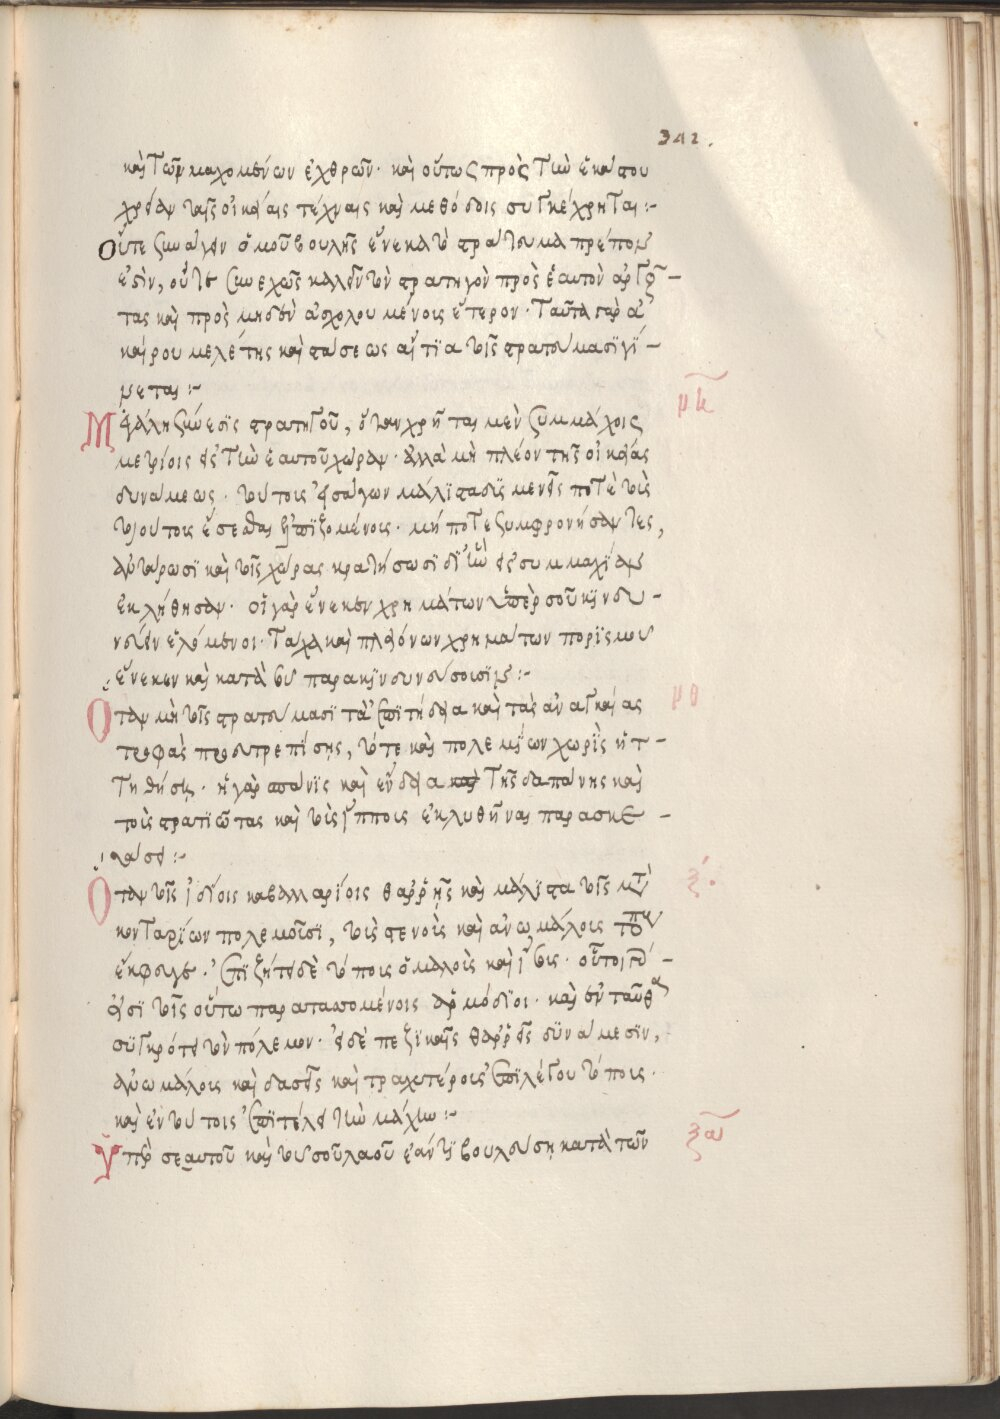 342.
καὶ τῶν μαχομένων ἐχθρῶν· καὶ οὕτως πρὸς τὴν ἑκάστου
χρείαν ταῖς οἰκείαις τέχναις καὶ μεθόδοις συγκέχρηται:-
Οὔτε συνάγειν ὁμοῦ βουλῆς ἕνεκα τὸ στράτευμα πρέπον
ἐστὶν, οὔτε συνεχῶς καλεῖν τὸν στρατηγὸν πρὸς ἑαυτὸν ἀργοῦν-
τας καὶ πρὸς μηδὲν ἀσχολουμένους ἕτερον· ταῦτα γὰρ ἀ
καίρου μελέτης καὶ στάσεως αἰτία τοῖς στρατεύμασι γί-
νεται:-
μη
Μεγάλη σύνεσις στρατηγοῦ, ὅταν χρῆται μὲν συμμάχοις
μετρίοις εἰς τὴν ἑαυτοῦ χώραν· ἀλλὰ μὴ πλέον τῆς οἰκείας
δυνάμεως· τούτοις εἰσάγων μάλιστα σισμενεῖς ποτὲ τοῖς
τούτοις ἔσεσθαι ἐλπιζομένοις· μή ποτε συμφρονήσαντες,
αὐτάρωσι καὶ τῆς χώρας κρατήσωσι δι' ἣν εἰς συμμαχίαν
ἐκλήθησαν· οἱ γὰρ ἕνεκεν χρημάτων ὑπὲρ σοῦ κινδυ-
νεύειν ἑλόμενοι· τάχα καὶ πλειόνων χρημάτων πορισμοῦ
ἕνεκεν καὶ κατὰ σοῦ παρακινδυνεύσουσιν:-
μθ
Ὅταν μὴ τοῖς στρατεύμασι τὰ ἐπιτήδεια καὶ τὰς ἀναγκαίας
τροφὰς προευτρεπίσῃς, τότε καὶ πολεμίων χωρὶς ἡτ-
τηθήσῃ· ἡ γὰρ σπάνις καὶ ἔνδεια καὶ τῆς δαπάνης καὶ
τοὺς στρατιώτας καὶ τοὺς ἵππους ἐκλυθῆναι παρασκε-
υάσει:-
ξ.
Ὅταν τοῖς ἰδίοις καβαλλαρίοις θαρρῇς καὶ μάλιστα τοῖς μετὰ
κονταρίων πολεμοῦσι, τοὺς στενοὺς καὶ ἀνωμάλους τόπους
ἔκφευγε· ἐπιζήτει δὲ τόπους ὁμαλοὺς καὶ ἴσους· οὗτοι γάρ
εἰσι τοῖς οὕτω παραταττομένοις ἁρμόδιοι· καὶ ἐν ταῦθα
συγκρότει τὸν πόλεμον· εἰ δὲ πεζικαῖς θαρρεῖς δυνάμεσιν,
ἀνωμάλους καὶ δασεῖς καὶ τραχυτέρους ἐπιλέγου τόπους·
καὶ ἐν τούτοις ἐπιτέλει τὴν μάχην:-
ξα
Ὑπὲρ σεαυτοῦ καὶ τοῦ σοῦ λαοῦ ἐάν τι βουλεύσῃ κατὰ τῶν